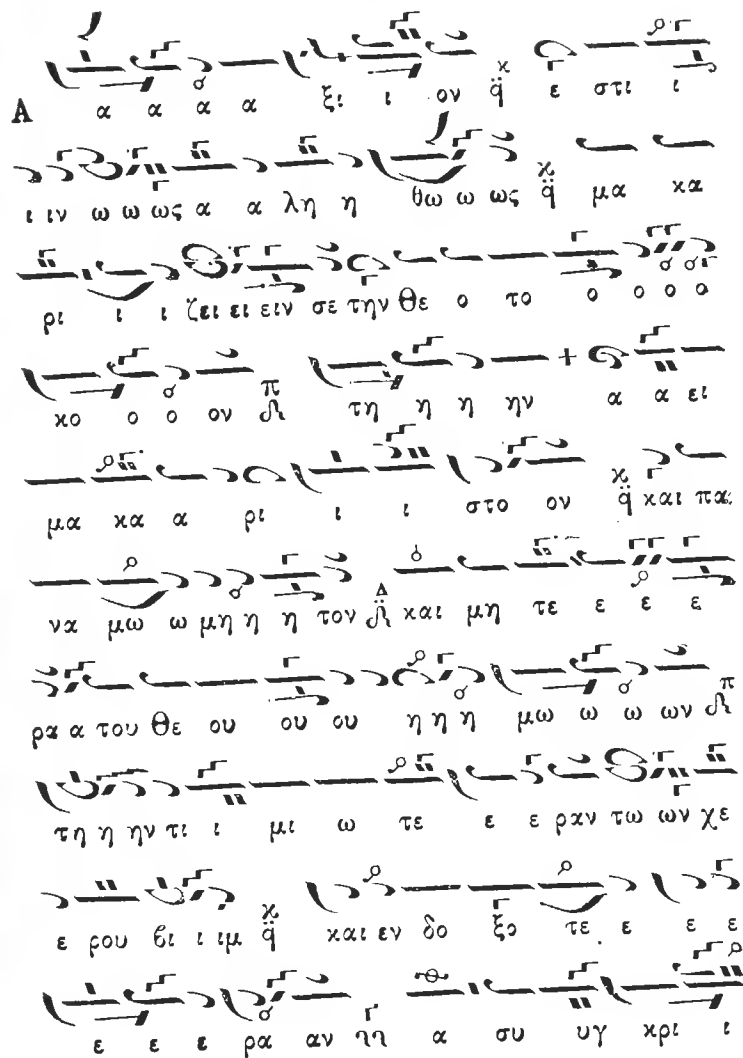 Α α α α α ξι ι ον κ̈ q̈ ε στι ι
ι ιν ω ω ως α α λη η θω ω ως κ̈ q̈ μα κα
ρι ι ι ζει ει ειν σε την Θε ο το ο ο ο ο
κο ο ο ον π τη η η ην α α ει
μα κα α ρι ι ι στο ον κ q̈ και πα
να μω ω μη η η τον Δ και μη τε ε ε ε
ρα α του Θε ου ου ου η η η μω ω ω ων π
τη η ην τι ι μι ω τε ε ε ραν τω ων χε
ε ρου βι ι ιμ κ q̈ και εν δο ξο τε ε ε ε
ε ε ε ρα αν α συ υγ κρι ι